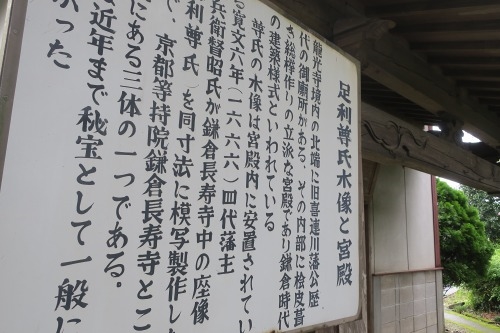 足利尊氏木像と宮殿
龍光寺境内の北端に旧喜連川藩公歴
代の御廟所がある。その内部に桧皮葺
き総欅作りの立派な宮殿であり鎌倉時代
の建築様式といわれている
尊氏の木像は宮殿内に安置されてい
寛文六年（一六六六）四代藩主
兵衛督昭氏が鎌倉長寿寺中の座像
利尊氏）を同寸法に模写製作し
で、京都等持院鎌倉長寿寺とこ
にある三体の一つである。
近年まで秘宝として一般に
かった